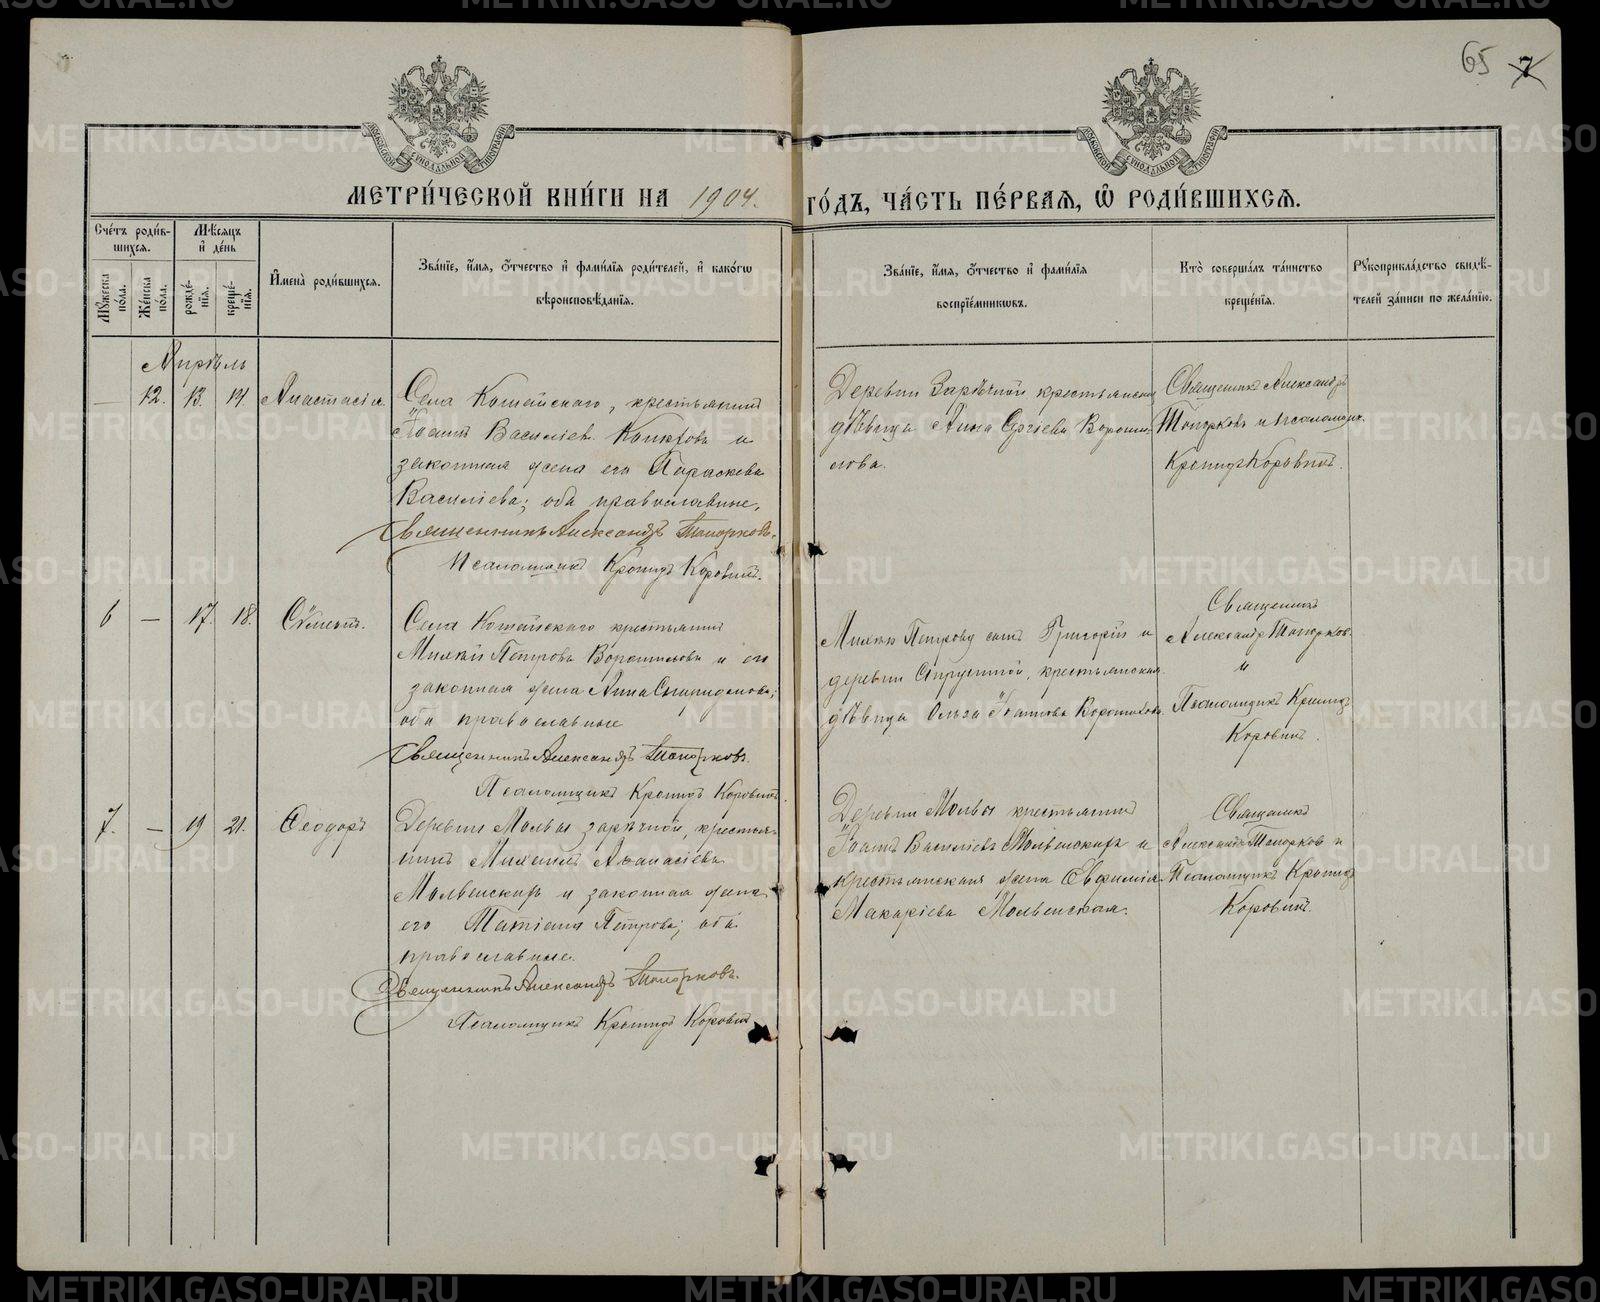 65 7
МЕТРИ́ЧЕСКОЙ КНИ́ГИ НА 1904. ГО́ДЪ, ЧА́СТЬ ПЕ́РВАЯ, Ѡ РОДИ́ВШИХСЯ.
Сче́тъ роди́вшихся.
Мꙋжеска по́ла.
Же́нска по́ла.
Мѣ́сяцъ и҆ де́нь
рожде́нїя.
креще́нїя.
И҆мена̀ роди́вшихся.
Зва́нїе, и҆́мя, ѻ҆́тчество и҆ фами́лїя роди́телей, и҆ како́гѡ
вѣроисповѣ́данїя.
Зва́нїе, и҆́мя, ѻ҆́тчество и҆ фами́лїя
воспрїе́мникѡвъ.
Кто̀ соверша́лъ та́инство
креще́нїя.
Рꙋкоприкла́дство свидѣ́-
телей за́писи по жела́нїю.
Апрѣль
— 12. 13. 14. Анастасія.
Села Кошайскаго, крестьянинъ
Іоаннъ Василіев
законная жена его Параскева
Василіева; оба православные.
Священникъ Александръ Топорковъ.
Псаломщикъ Кронидъ Коровинъ.
Деревни Зарѣчной крестьянская
дѣвица Анна Сергіева Вороши-
лова.
Священникъ Александръ
Топорковъ и Псаломщикъ
Кронидъ Коровинъ.
6 — 17. 18. Сѵмеонъ.
Села Кошайскаго крестьянинъ
Петровъ Ворошиловъ и его
законная жена Анна Спиридонова;
оба православные
Священникъ Александръ Топорковъ.
Псаломщикъ Кронидъ Коровинъ.
Петрову сынъ Григорій и
деревни крестьянская
дѣвица Ольга Іоаннова Ворошилова.
Священникъ
Александръ Топорковъ
и
Псаломщикъ Кронидъ
Коровинъ.
7. — 19 21. Ѳеодоръ
Деревни Молвы зарѣчной, крестья-
нинъ Михаилъ Аѳанасіевъ
Молвинскихъ и законная жена
его Татіана Петрова; оба
православные.
Священникъ Александръ Топорковъ.
Псаломщикъ Кронидъ Коровинъ
Деревни Молвы крестьянинъ
Іоаннъ Василіевъ Молвинскихъ и
крестьянская жена Евфимія
Макаріева Молвинская.
Священникъ
Александръ Топорковъ и
Псаломщикъ Кронидъ
Коровинъ.
METRIKI.GASO-URAL.RU